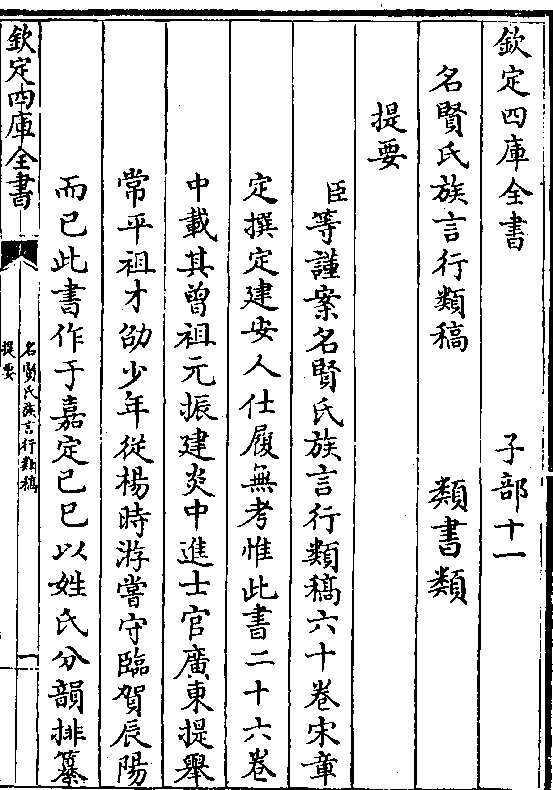 欽定四庫全書 子部十一
名賢氏族言行類稿 類書類
提要
臣等謹案名賢氏族言行類稿六十卷宋章
定撰定建安人仕履無考惟此書二十六卷
中載其曾祖元振建炎中進士官廣東提舉
常平祖才邵少年從楊時游嘗守臨賀辰陽
而已此書作于嘉定己巳以姓氏分韻排纂
欽定四庫全書
名賢氏族言行類稿
提要
一